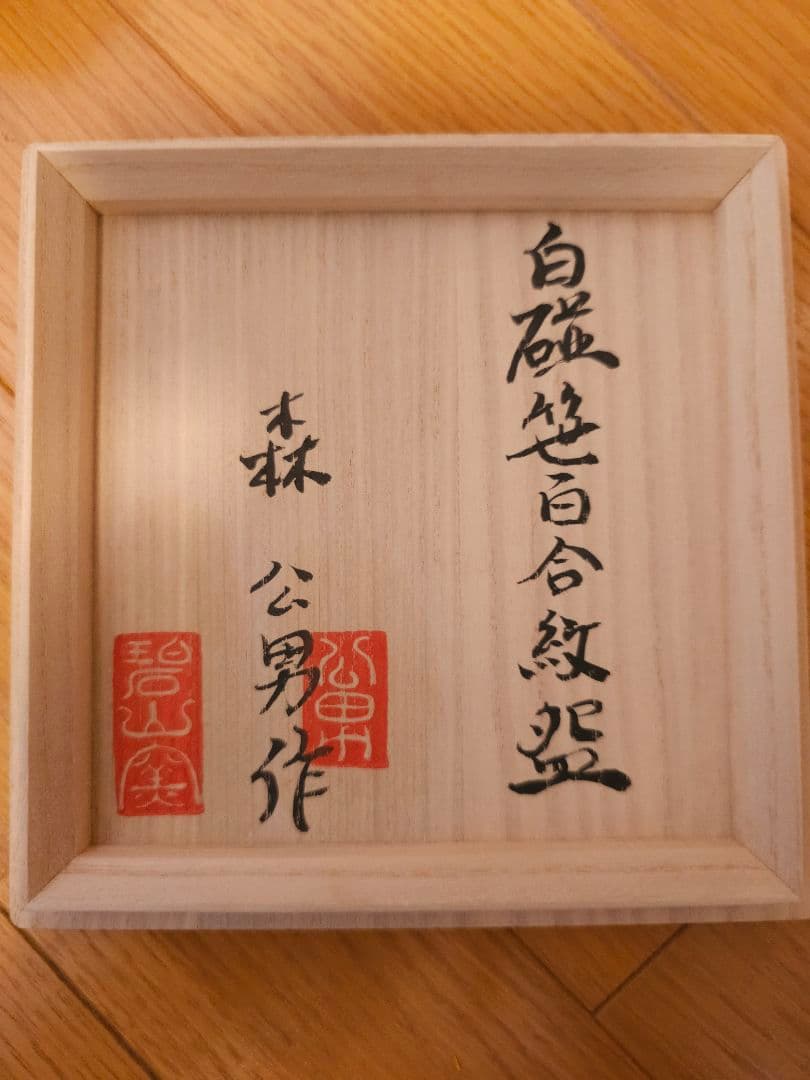 白磁笹百合紋盌
森 公男作
公男
碧山窯